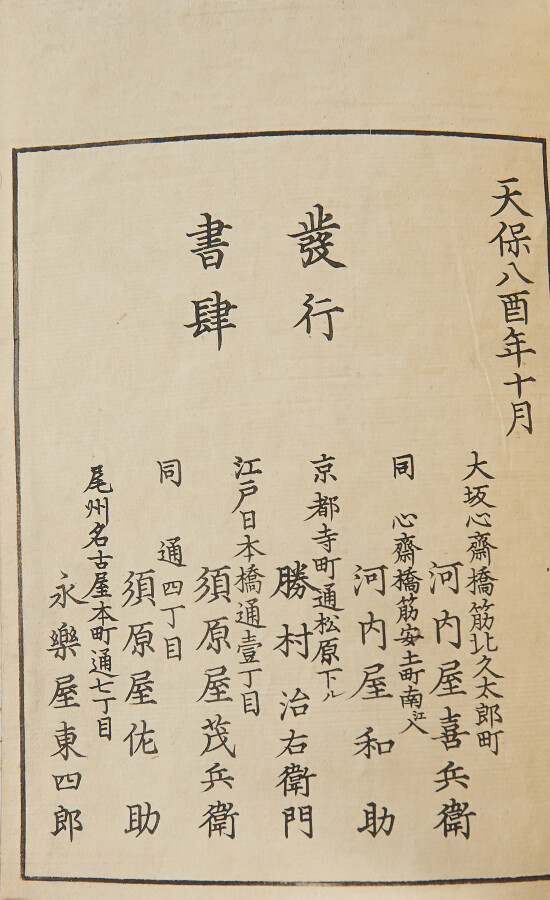 天保八酉年十月
發行
書肆
大坂心齋橋筋北久太郎町
河内屋喜兵衛
同 心齋橋筋安土町南江入
河内屋和助
京都寺町通松原下ル
勝村治右衛門
江戸日本橋通壹丁目
須原屋茂兵衛
同 通四丁目
須原屋佐助
尾州名古屋本町通七丁目
永樂屋東四郎